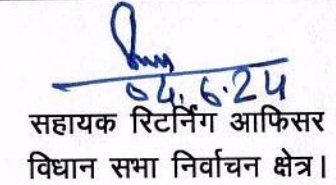 04.6.24
सहायक रिटर्निंग आफिसर
विधान सभा निर्वाचन क्षेत्र।